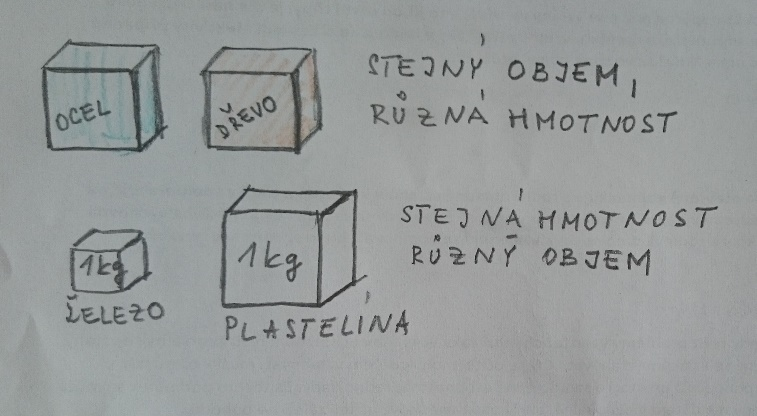 OCEL
DŘEVO
STEJNÝ OBJEM,
RŮZNÁ HMOTNOST
1kg
ŽELEZO
1kg
PLASTELÍNA
STEJNÁ HMOTNOST
RŮZNÝ OBJEM